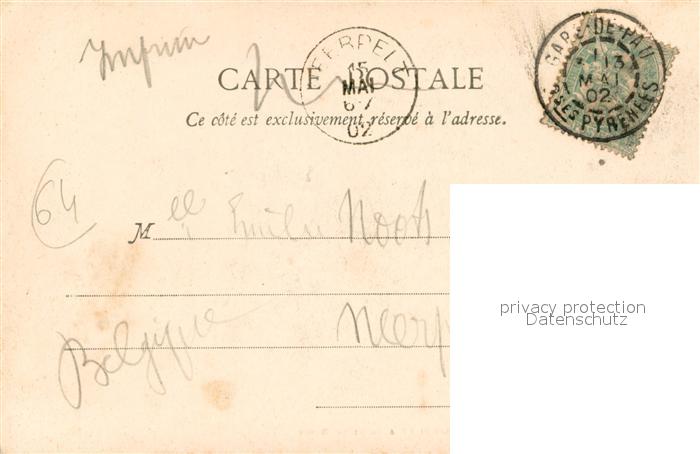 GARE-DE-PAU
13
MAI
02
BSES PYRENEES
NEERPELT
15
MAI
6-7
02
CARTE POSTALE
Ce côté est exclusivement réservé à l'adresse.
64
Melle Emilie Noots
privacy protection
Datenschutz
Neerp
Belgique